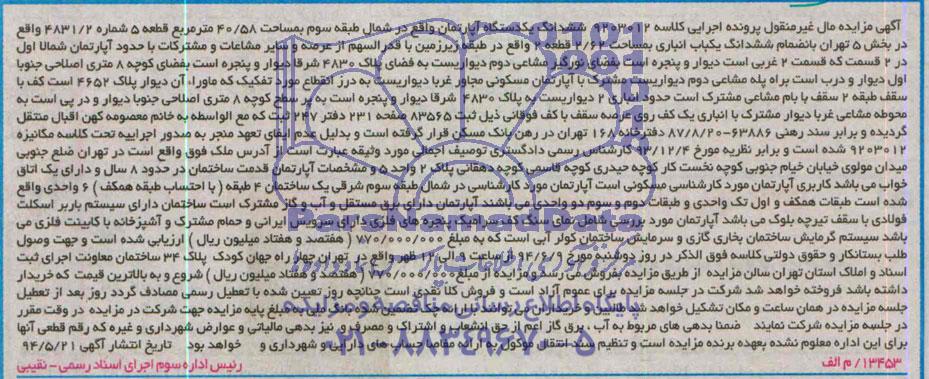 آگهی مزایده مال غیرمنقول پرونده اجرایی کلاسه ۹۲۰۳۰۱۲ ششدانگ یکدستگاه آپارتمان واقع در شمال طبقه سوم بمساحت ۴۰/۵۸ مترمربع قطعه ۵ شماره ۴۸۳۱/۲ واقع
در بخش ۵ تهران بانضمام ششدانگ یکباب انباری بمساحت ۲/۶۲ قطعه ۲ واقع در طبقه زیرزمین با قدرالسهم از عرصه و سایر مشاعات و مشترکات با حدود آپارتمان شمالا اول
در ۲ قسمت که قسمت ۲ غربی است دیوار و پنجره است بفضای نورگیر مشاعی دوم دیواریست به فضای پلاک ۴۸۳۰ شرقا دیوار و پنجره است بفضای کوچه ۸ متری اصلاحی جنوبا
اول دیوار و درب است براه پله مشاعی دوم دیواریست مشترک با آپارتمان مسکونی مجاور غربا دیواریست به درز انقطاع مورد تفکیک که ماوراء آن دیوار پلاک ۴۶۵۲ است کف با
سقف طبقه ۲ سقف با بام مشاعی مشترک است حدود انباری ۲ دیواریست به پلاک ۴۸۳۰ شرقا دیوار و پنجره است به پر سطح کوچه ۸ متری اصلاحی جنوبا دیوار و در پی است به
محوطه مشاعی غربا دیوار مشترک با انباری یک کف روی عرصه سقف با کف فوقانی ذیل ثبت ۸۳۵۶۵ صفحه ۲۳۱ دفتر ۲۴۷ ثبت که مع الواسطه به خانم معصومه کهن اقبال منتقل
گردیده و برابر سند رهنی ۶۳۸۸۶-۸۷/۸/۲۰ دفترخانه ۱۶۸ تهران در رهن بانک مسکن قرار گرفته است و بدلیل عدم ایفای تعهد منجر به صدور اجراییه تحت کلاسه مکانیزه
۹۲۰۳۰۱۲ شده است و برابر نظریه مورخ ۹۳/۱۲/۴ کارشناس رسمی دادگستری توصیف اجمالی مورد وثیقه عبارت است از آدرس ملک فوق واقع است در تهران ضلع جنوبی
میدان مولوی خیابان خیام جنوبی کوچه نخست کار کوچه حیدری کوچه قاسمی کوچه دهقانی پلاک ۲ واحد ۵ و مشخصات آپارتمان قدمت ساختمان در حدود ۸ سال و دارای یک اتاق
خواب می باشد کاربری آپارتمان مورد کارشناسی مسکونی است آپارتمان مورد کارشناسی در شمال طبقه سوم شرقی یک ساختمان ۴ طبقه ( با احتساب طبقه همکف ) ۶ واحدی واقع
شده است طبقات همکف و اول تک واحدی و طبقات دوم و سوم دو واحدی می باشند آپارتمان دارای برق مستقل و آب و گاز مشترک است ساختمان دارای سیستم باربر اسکلت
فولادی با سقف تیرچه بلوک می باشد آپارتمان مورد بررسی شامل نمای سنگ کف سرامیک پنجره های فلزی دارای سرویس ایرانی و حمام مشترک و آشپزخانه با کابینت فلزی می
باشد سیستم گرمایش ساختمان بخاری گازی و سرمایش ساختمان کولر آبی است که به مبلغ ۷۷۰/۰۰۰/۰۰۰ ( هفتصد و هفتاد میلیون ریال ) ارزیابی شده است و جهت وصول
طلب بستانکار و حقوق دولتی کلاسه فوق الذکر در روز دوشنبه مورخ ۹۴/۶/۹ از ساعت ۹ الی ۱۲ ظهر واقع در تهران چهار راه جهان کودک پلاک ۳۴ ساختمان معاونت اجرای ثبت
اسناد و املاک استان تهران سالن مزایده از طریق مزایده بفروش می رسد و مزایده از مبلغ ۷۷۰/۰۰۰/۰۰۰ ( هفتصد و هفتاد میلیون ریال ) شروع و به بالاترین قیمت که خریدار
داشته باشد فروخته خواهد شد شرکت در جلسه مزایده برای عموم آزاد است و فروش کلا نقدی است چنانچه روز تعیین شده با تعطیل رسمی مصادف گردد روز بعد از تعطیل
جلسه مزایده در همان ساعت و مکان تشکیل خواهد شد طالبین و خریداران می توانند چک تضمین شده بانک ملی به مبلغ پایه مزایده جهت شرکت در مزایده در وقت مقرر
در جلسه مزایده شرکت نمایند ضمنا بدهی های مربوط به آب ، برق گاز اعم از حق انشعاب و اشتراک و مصرف و نیز بدهی مالیاتی و عوارض شهرداری و غیره که رقم قطعی آنها
برای این اداره معلوم نشده بعهده برنده مزایده است و تنظیم سند انتقال موکول به ارائه مفاصا حساب های دارایی و شهرداری و خواهد بود تاریخ انتشار آگهی ۹۴/۵/۲۱
۱۳۴۵۳/ م الف رئیس اداره سوم اجرای اسناد رسمی - نقیبی
پایگاه اطلاع رسانی مناقصه و مزایده